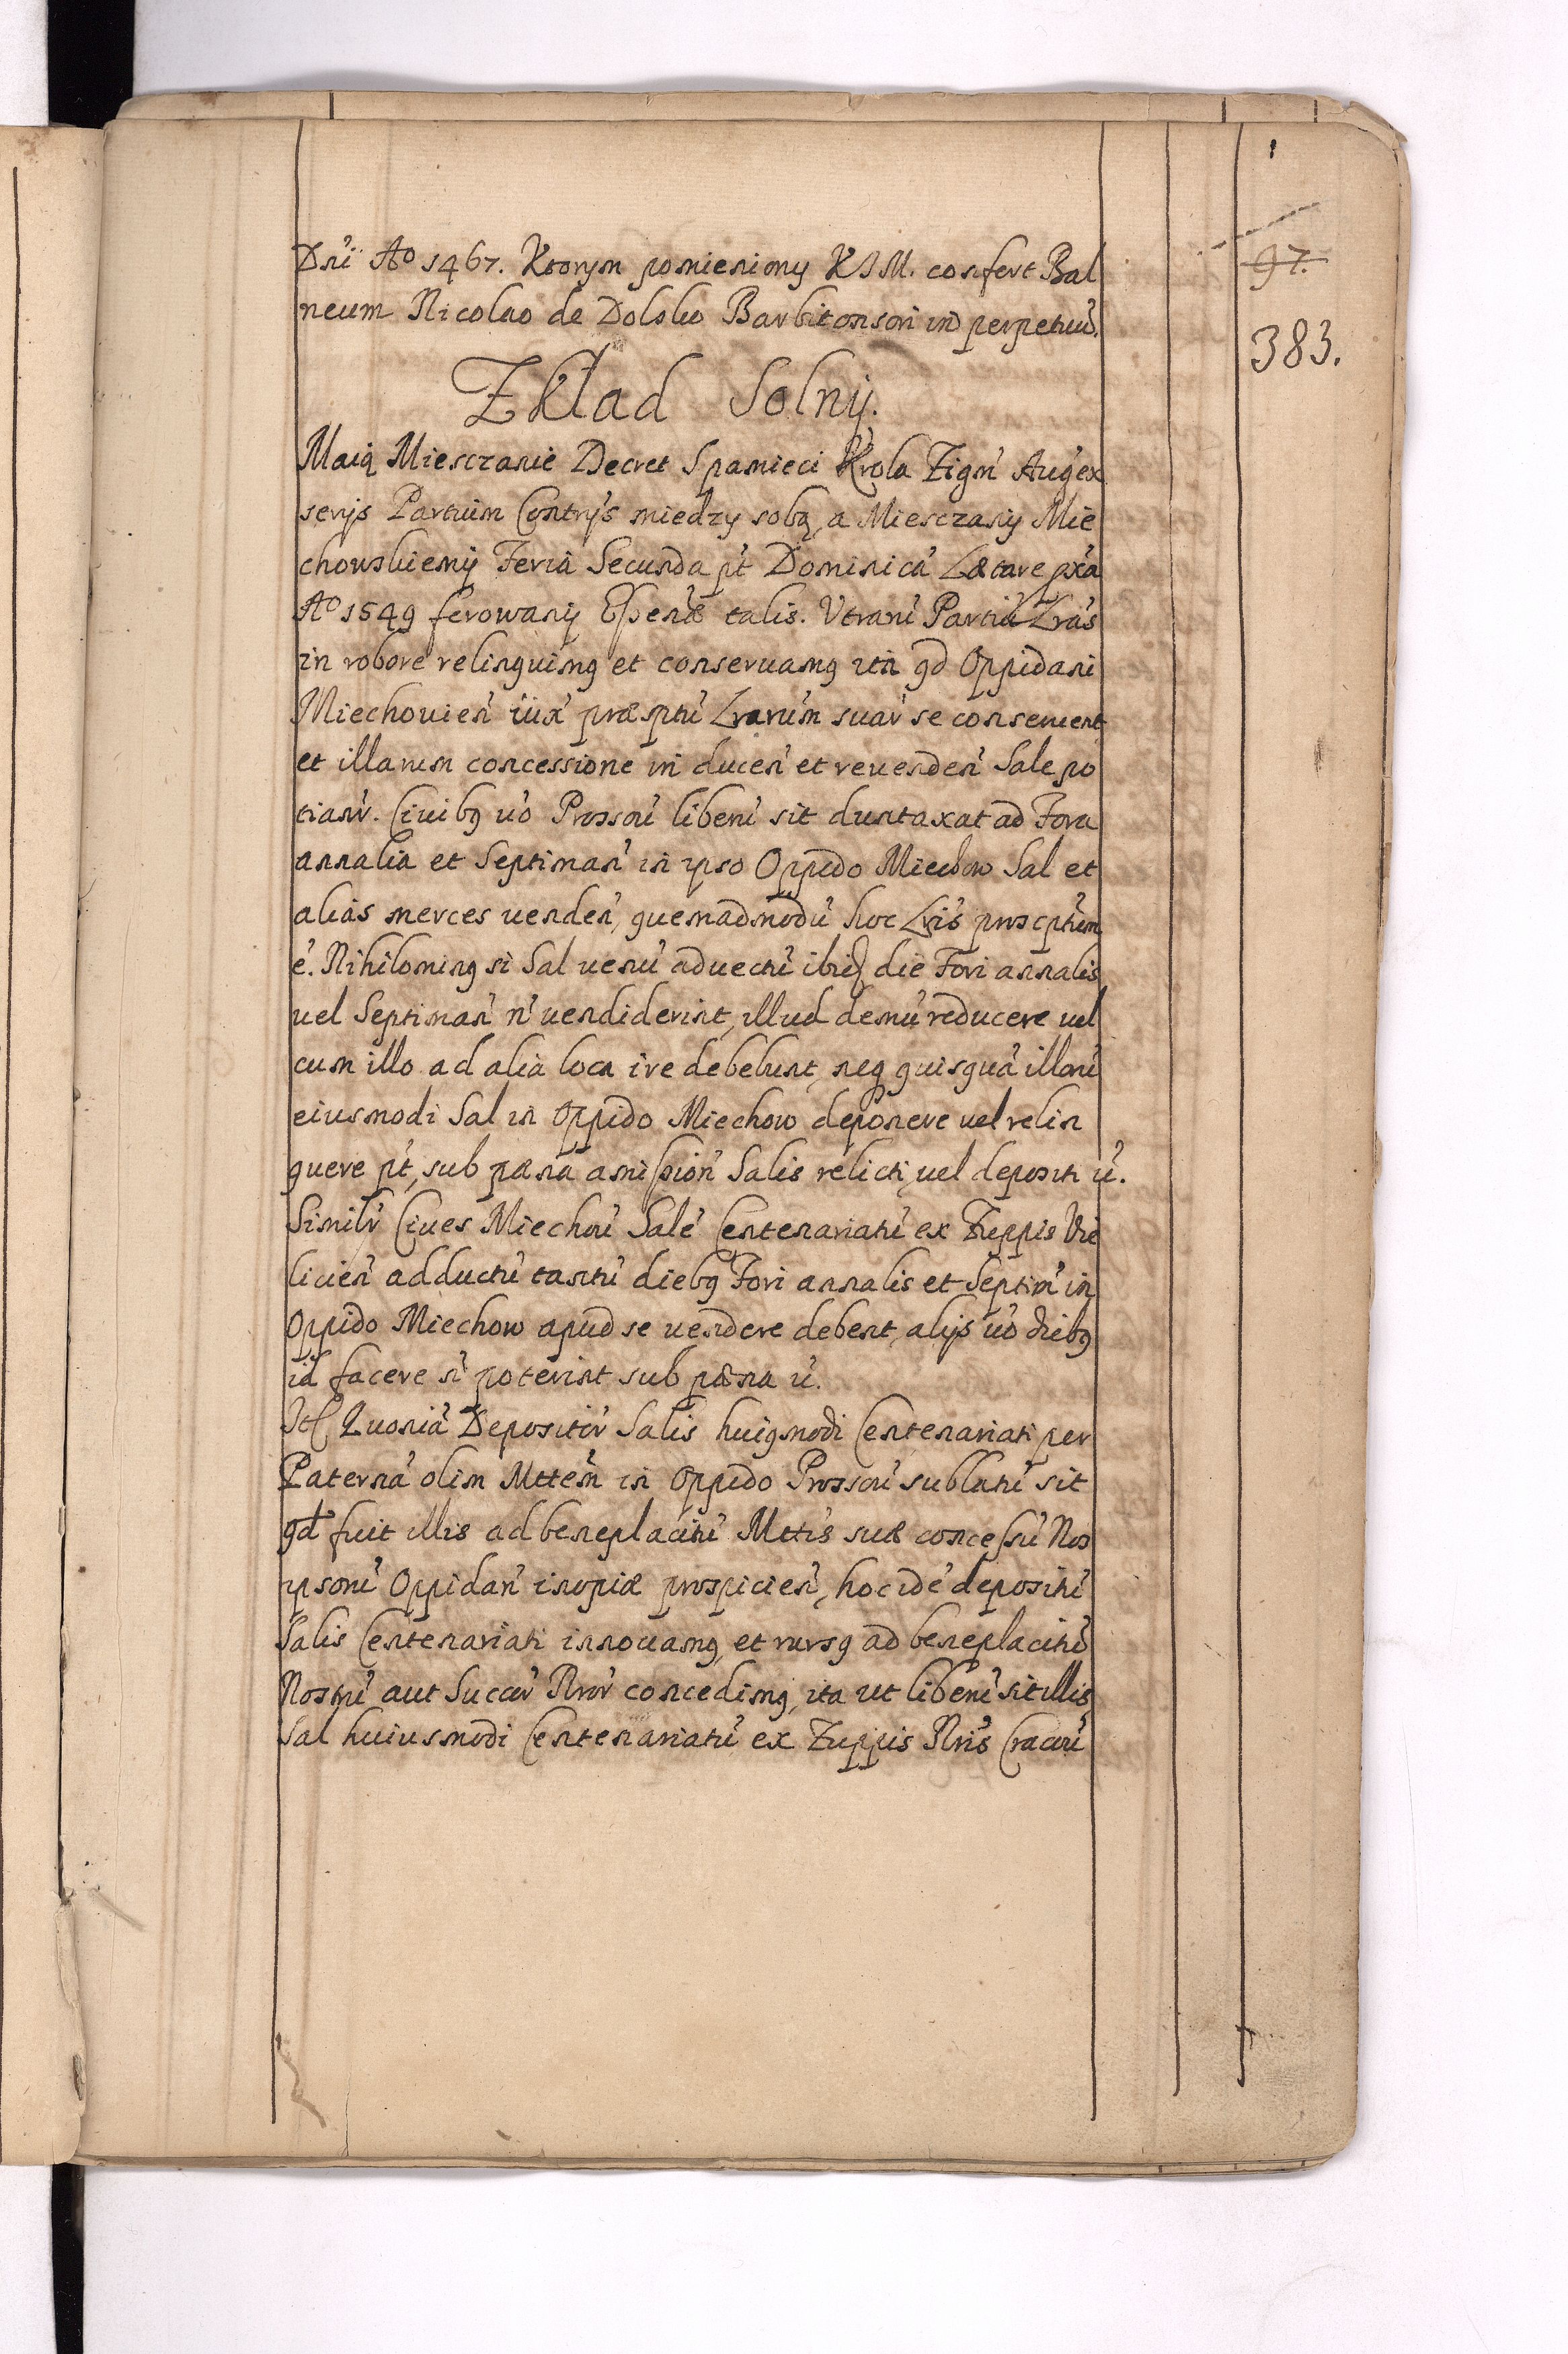 97.
383.
Dni Aº 1467. Ktorym pomieniony KIM. confert Bal
neum Nicolao de Dolsko Barbitonsori in perpetuũ.
Zkład Solny.
Maią Miesczanie Decret Spamieci Krola Zigm̃ Aug ex
serijs Partium Contrijs miedzy sobą, a Miesczany Mie
chowskiemy Feria Secunda pt̃ Dominicã Lætare pxã
Aº 1549 ferowany Eſsenæ talis. Utranĩ Partiũ Lrãs
in robore relinquimꝯ et conseruamꝯ itã qd Oppidani
Miechouieñ iux̃ præsptũ Lrarũm suar̃ se conseruent
et illarum concessione in duceñ et reuendeñ Sale po
tiant̃. Ciuibꝯ ũo Prossoũ liberũ sit duntaxat ad Fora
annalia et Septimañ in ipso Oppido Miechow Sal et
alias merces uendeñ, quemadmodũ hoc Lris præscptum
ẽ. Nihilominꝯ si Sal uenũ aduectũ ibid die Fori annalis
uel Septimañ ñ uendiderint, illud demũ reducere uel
cum illo ad alia loca ire debebunt, neq quisquã illorũ
eiusmodi Sal in Oppido Miechow deponere uel relin
quere pt̃, sub pæna amiſsioñ Salis relicti uel depositi ũ.
Similr̃ Ciues Miechoũ Salẽ Centenariatũ ex Zuppis Vie
licieñ adductũ tantũ diebꝯ Fori annalis et Septim̃ in
Oppido Miechow apud se uendere debent, alijs ũo diebꝯ
id facere ñ poterint sub pæna ũ.
Itẽ Quoniã Depositũ Salis huiꝯmodi Centenariati per
Paternã olim Mttem̃ in Oppido Prossoũ sublatũ sit
qd fuit illis ad beneplacitũ Mttis suæ conceſsũ Nos
ipsorũ Oppidañ inopiæ prospicieñ, hoc idẽ depositũ
Salis Centenariati innouamꝯ, et rursꝯ ad beneplacitũ
Nostrũ aut Succor̃ Nror̃ concedimꝯ, ita ut liberũ sit illis
Sal huiusmodi Centenariatũ ex Zuppis Nris Cracoũ